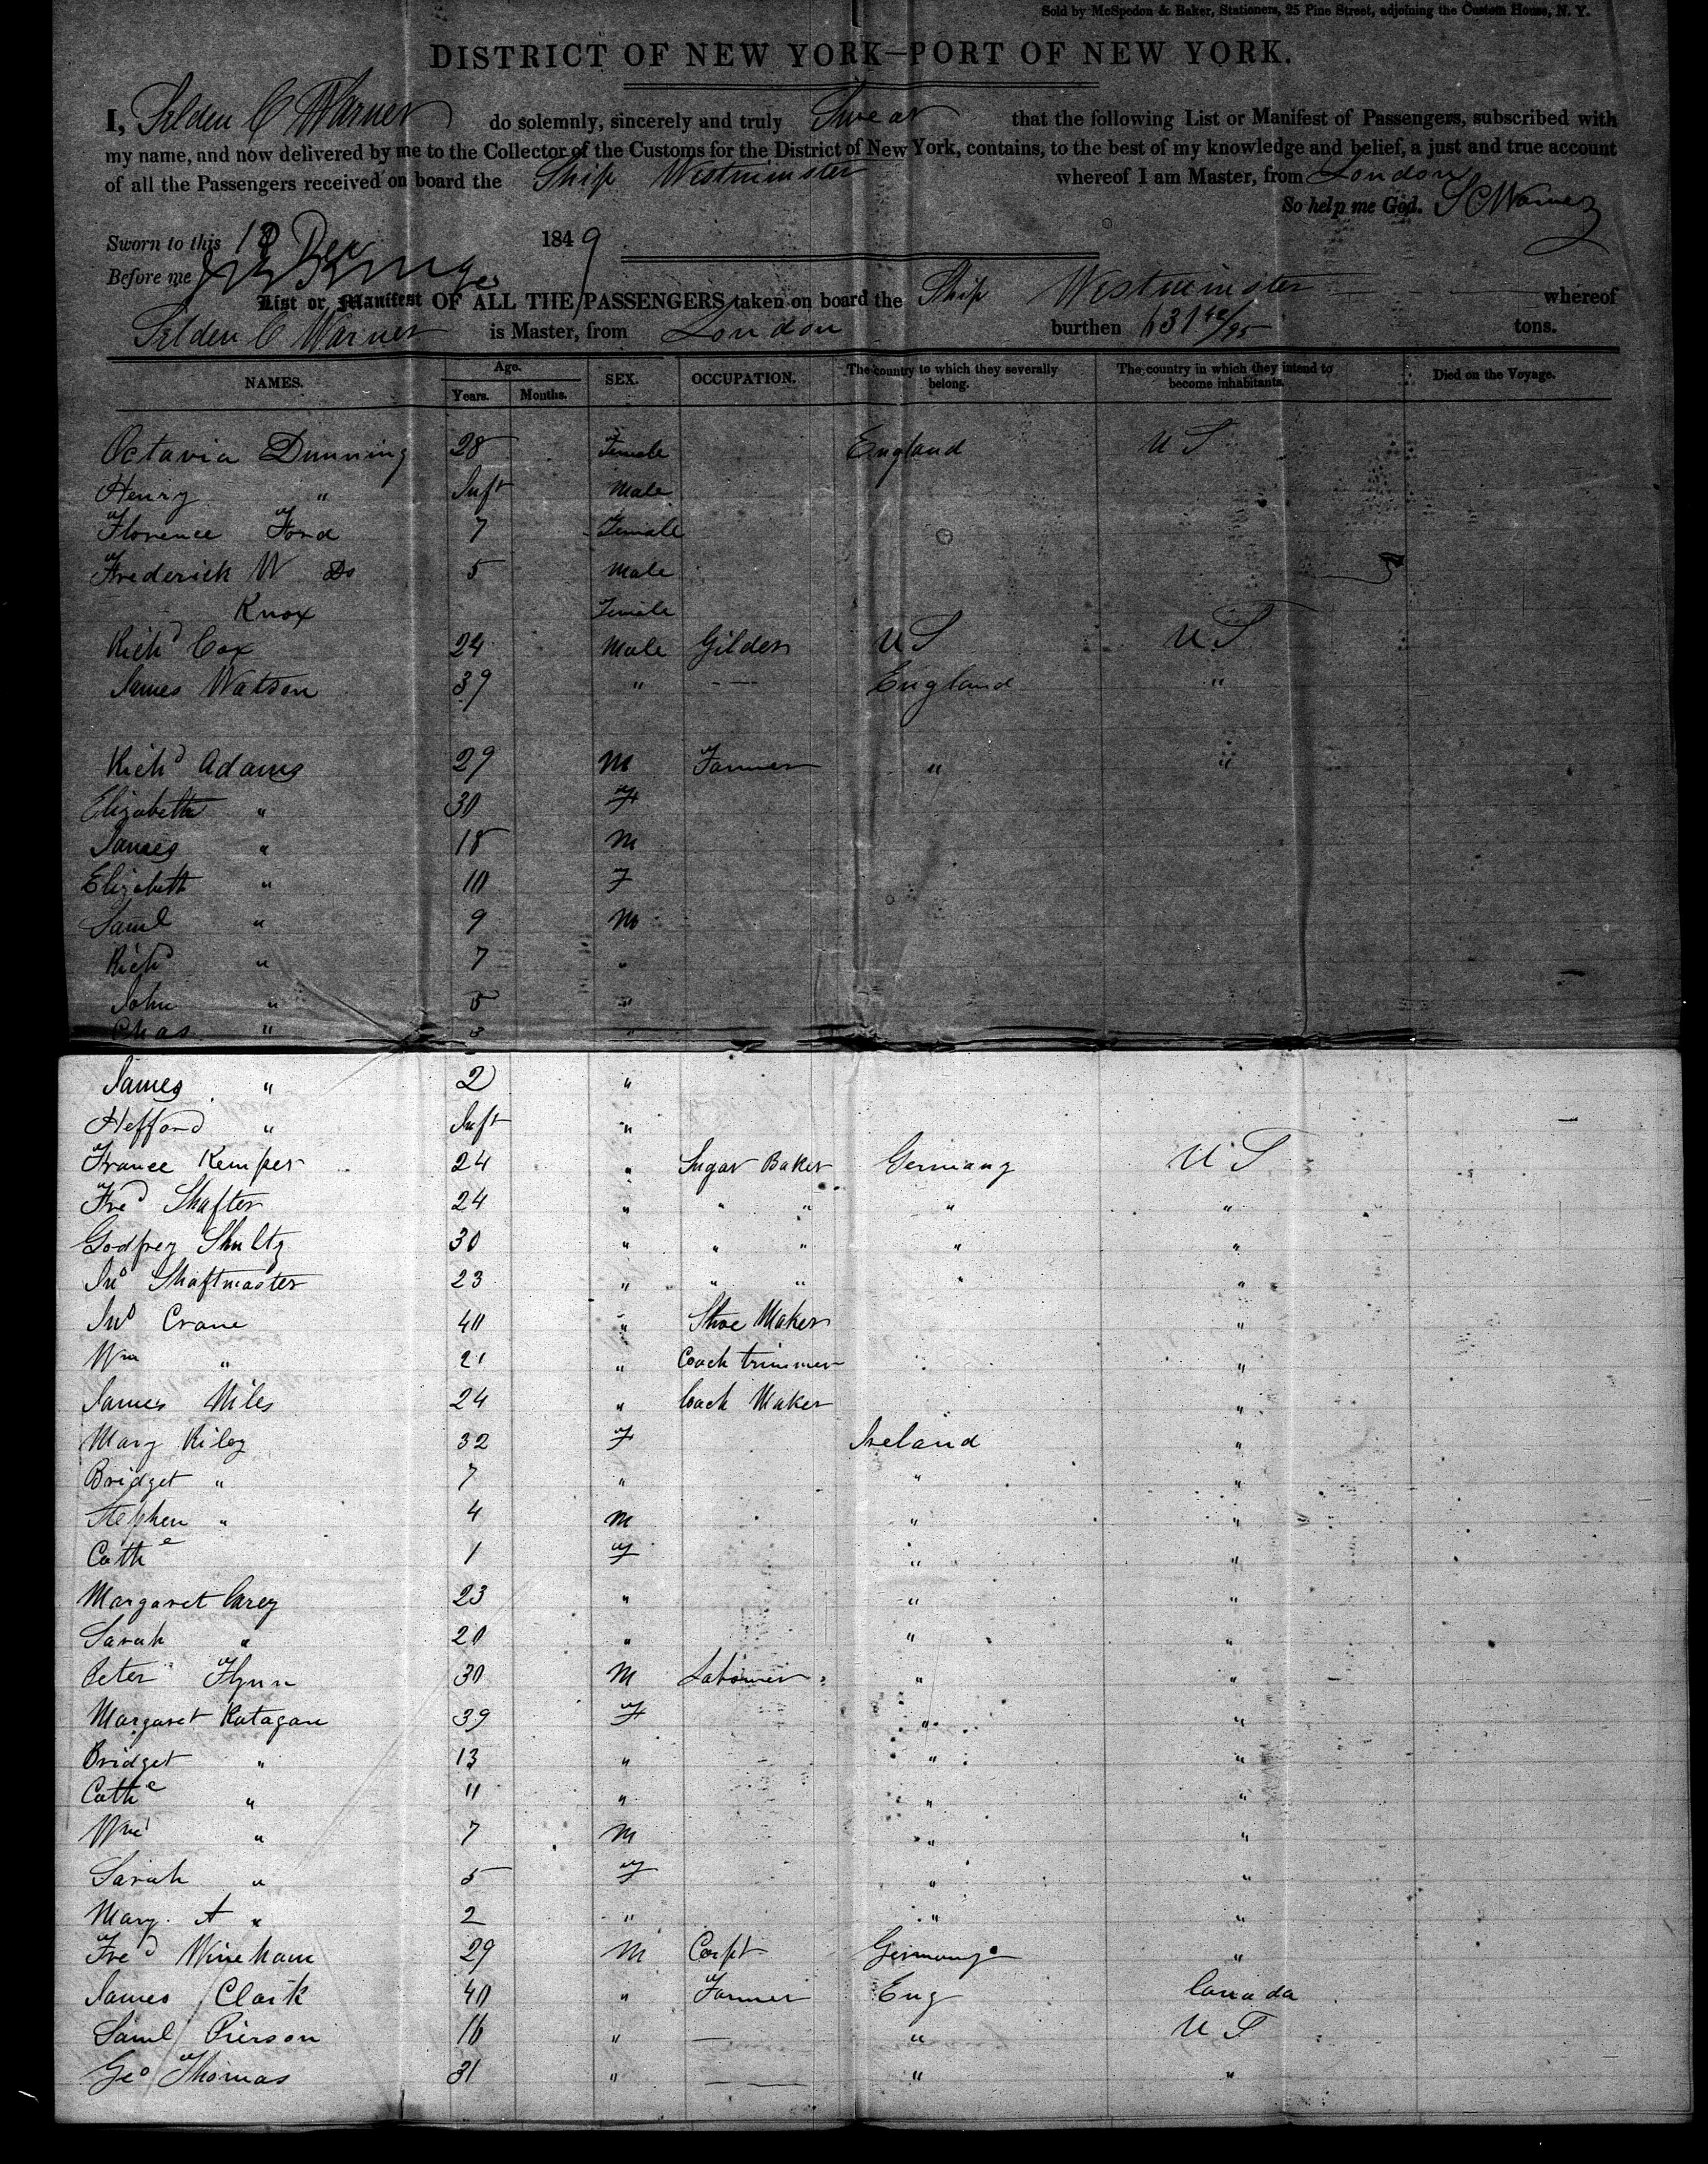 Sold by McSpedon & Baker, Stationers, 25 Pine Street, adjoining the Custom House, N. Y.
DISTRICT OF NEW YORK—PORT OF NEW YORK.
I, Selden C Warner do solemnly, sincerely and truly Swear that the following List or Manifest of Passengers, subscribed with
my name, and now delivered by me to the Collector of the Customs for the District of New York, contains, to the best of my knowledge and belief, a just and true account
of all the Passengers received on board the Ship Westminster whereof I am Master, from London
So help me God. S C Warner
Sworn to this 18 Dec 1849
Before me
List or Manifest OF ALL THE PASSENGERS taken on board the Ship Westminster whereof
Selden C Warner is Master, from London burthen 631 42/95 tons.
NAMES. Age. Years. Months. SEX. OCCUPATION. The country to which they severally belong. The country in which they intend to become inhabitants. Died on the Voyage.
Octavia Dunning 28 Female England U S
Henry " Inft Male
Florence Ford 7 Female
Frederick W Do 5 Male
Knox Female
Richd Cox 24 Male Gilder U S U S
James Watson 39 " — England "
Richd Adams 29 M Farmer " "
Elizabeth " 30 F
James " 18 M
Elizabeth " 10 F
Saml " 9 M
Richd " 7 "
John " 5 "
Chas " 3 "
James " 2 "
Hefford " Inft "
France Kemper 24 " Sugar Baker Germany U S
Fred Shafter 24 " " " " "
Godfrey Shultz 30 " " " " "
Jno Shaftmaster 23 " " " " "
Jno Crane 40 " Shoe Maker "
Wm " 21 " Coach trimmer "
James Miles 24 " Coach Maker "
Mary Riley 32 F Ireland "
Bridget " 7 " " "
Stephen " 4 M " "
Cathe 1 F " "
Margaret Carey 23 " " "
Sarah " 20 " " "
Peter Flynn 30 M Labourer " "
Margaret Ratagan 39 F " "
Bridget " 13 " " "
Cathe " 11 " " "
Wm " 7 M " "
Sarah " 5 F " "
Mary A " 2 " " "
Fred Wineham 29 M Carpt Germany "
James Clark 40 " Farmer Eng Canada
Saml Pierson 16 " — " U S
Geo Thomas 31 " — " "